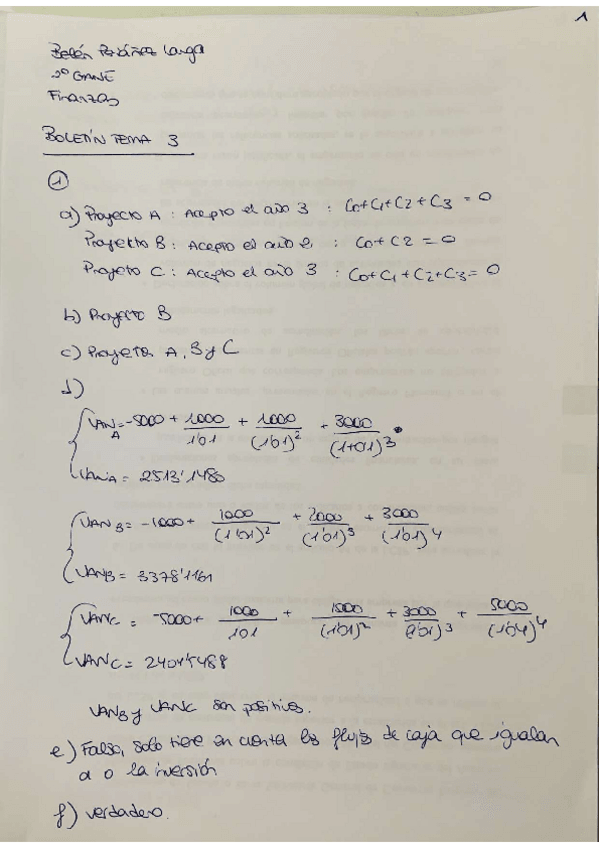 1
Belén Larga
2º GANE
Finanzas
BOLETÍN TEMA 3
①
a) Proyecto A : Acepto el año 3 : C0+C1+C2+C3 = 0
Proyekto B : Acepto el año 2 : C0+C2 = 0
Projeto C : Acepto el año 3 : C0+C1+C2+C3 = 0
b) Proyecto B
c) Proyectos A, B y C
d)
VAN A = -5000 + 1000/1'01 + 1000/(1'01)^2 + 3000/(1+01)^3
VAN A = 2513'1480
VAN B = -1000 + 1000/(1'01)^2 + 2000/(1'01)^3 + 3000/(1'01)^4
VAN B = 3378'1161
VAN C = -5000 + 1000/101 + 1000/(1'01)^2 + 3000/(1'01)^3 + 5000/(1'01)^4
VAN C =
VAN B y VAN C son positivos.
e) Falso, solo tiene en cuenta los flujos de caja que igualan
a 0 la inversión
f) verdadero.